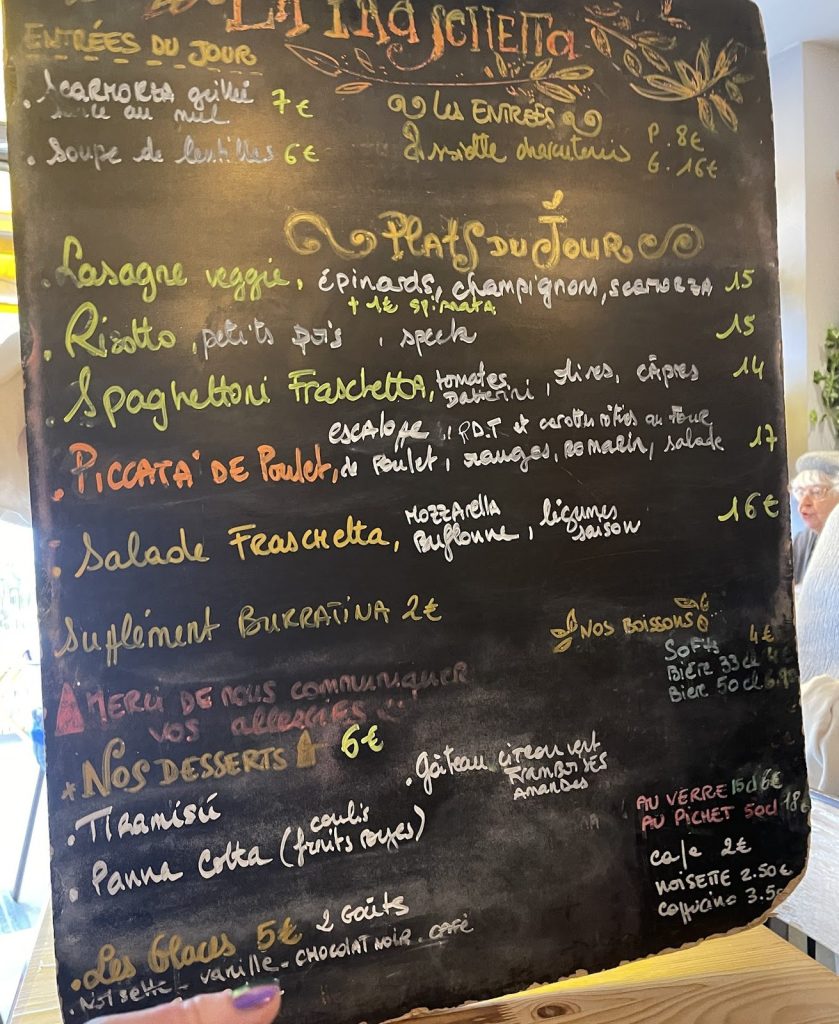 La Fraschetta
ENTRÉES DU JOUR
. SCAMORZA grillé 7€
sauce au miel
. Soupe de lentilles 6€
Les ENTRÉES
Assiette charcuteries P. 8€
G. 16€
PLATS DU JOUR
. Lasagne veggie, épinards, champignons, SCAMORZA 15
+ 1€ spinata
. Risotto, petits pois, speck 15
. Spaghettoni FRASCHETTA, tomates Datterini, olives, câpres 14
escalope, P.D.T et carottes rôties au FOUR
. PICCATA DE Poulet, de Poulet, oranges, ROMARIN, salade 17
. Salade FRASCHETTA, MOZZARELLA Bufflonne, légumes saison 16€
Supplément BURRATINA 2€
MERCI DE NOUS COMMUNIQUER
VOS ALLERGIES
NOS BOISSONS
SOFTS 4€
BIÈRE 33cl 4€
Bière 50cl
NOS DESSERTS 6€
. TIRAMISÙ
. Panna Cotta (coulis fruits rouges)
. Gâteau citron vert
FRAMBOISES
AMANDES
AU VERRE 15cl 6€
AU PICHET 50cl 18€
café 2€
NOISETTE 2.50€
Cappucino 3.50
. Les Glaces 5€ 2 GOÛTS
. Noisette - vanille - CHOCOLAT NOIR . CAFÉ